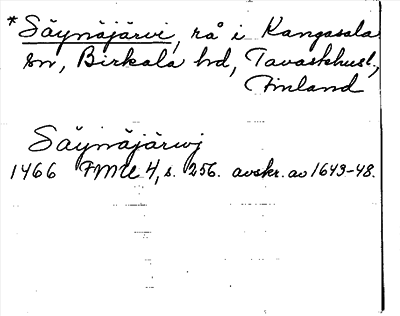 *Säynäjärvi, rå i Kangasala
sn, Birkala hd, Tavastehusl.,
Finland
Säynäjärwj
1466 FMU 4, s. 256. avskr. av 1643-48.